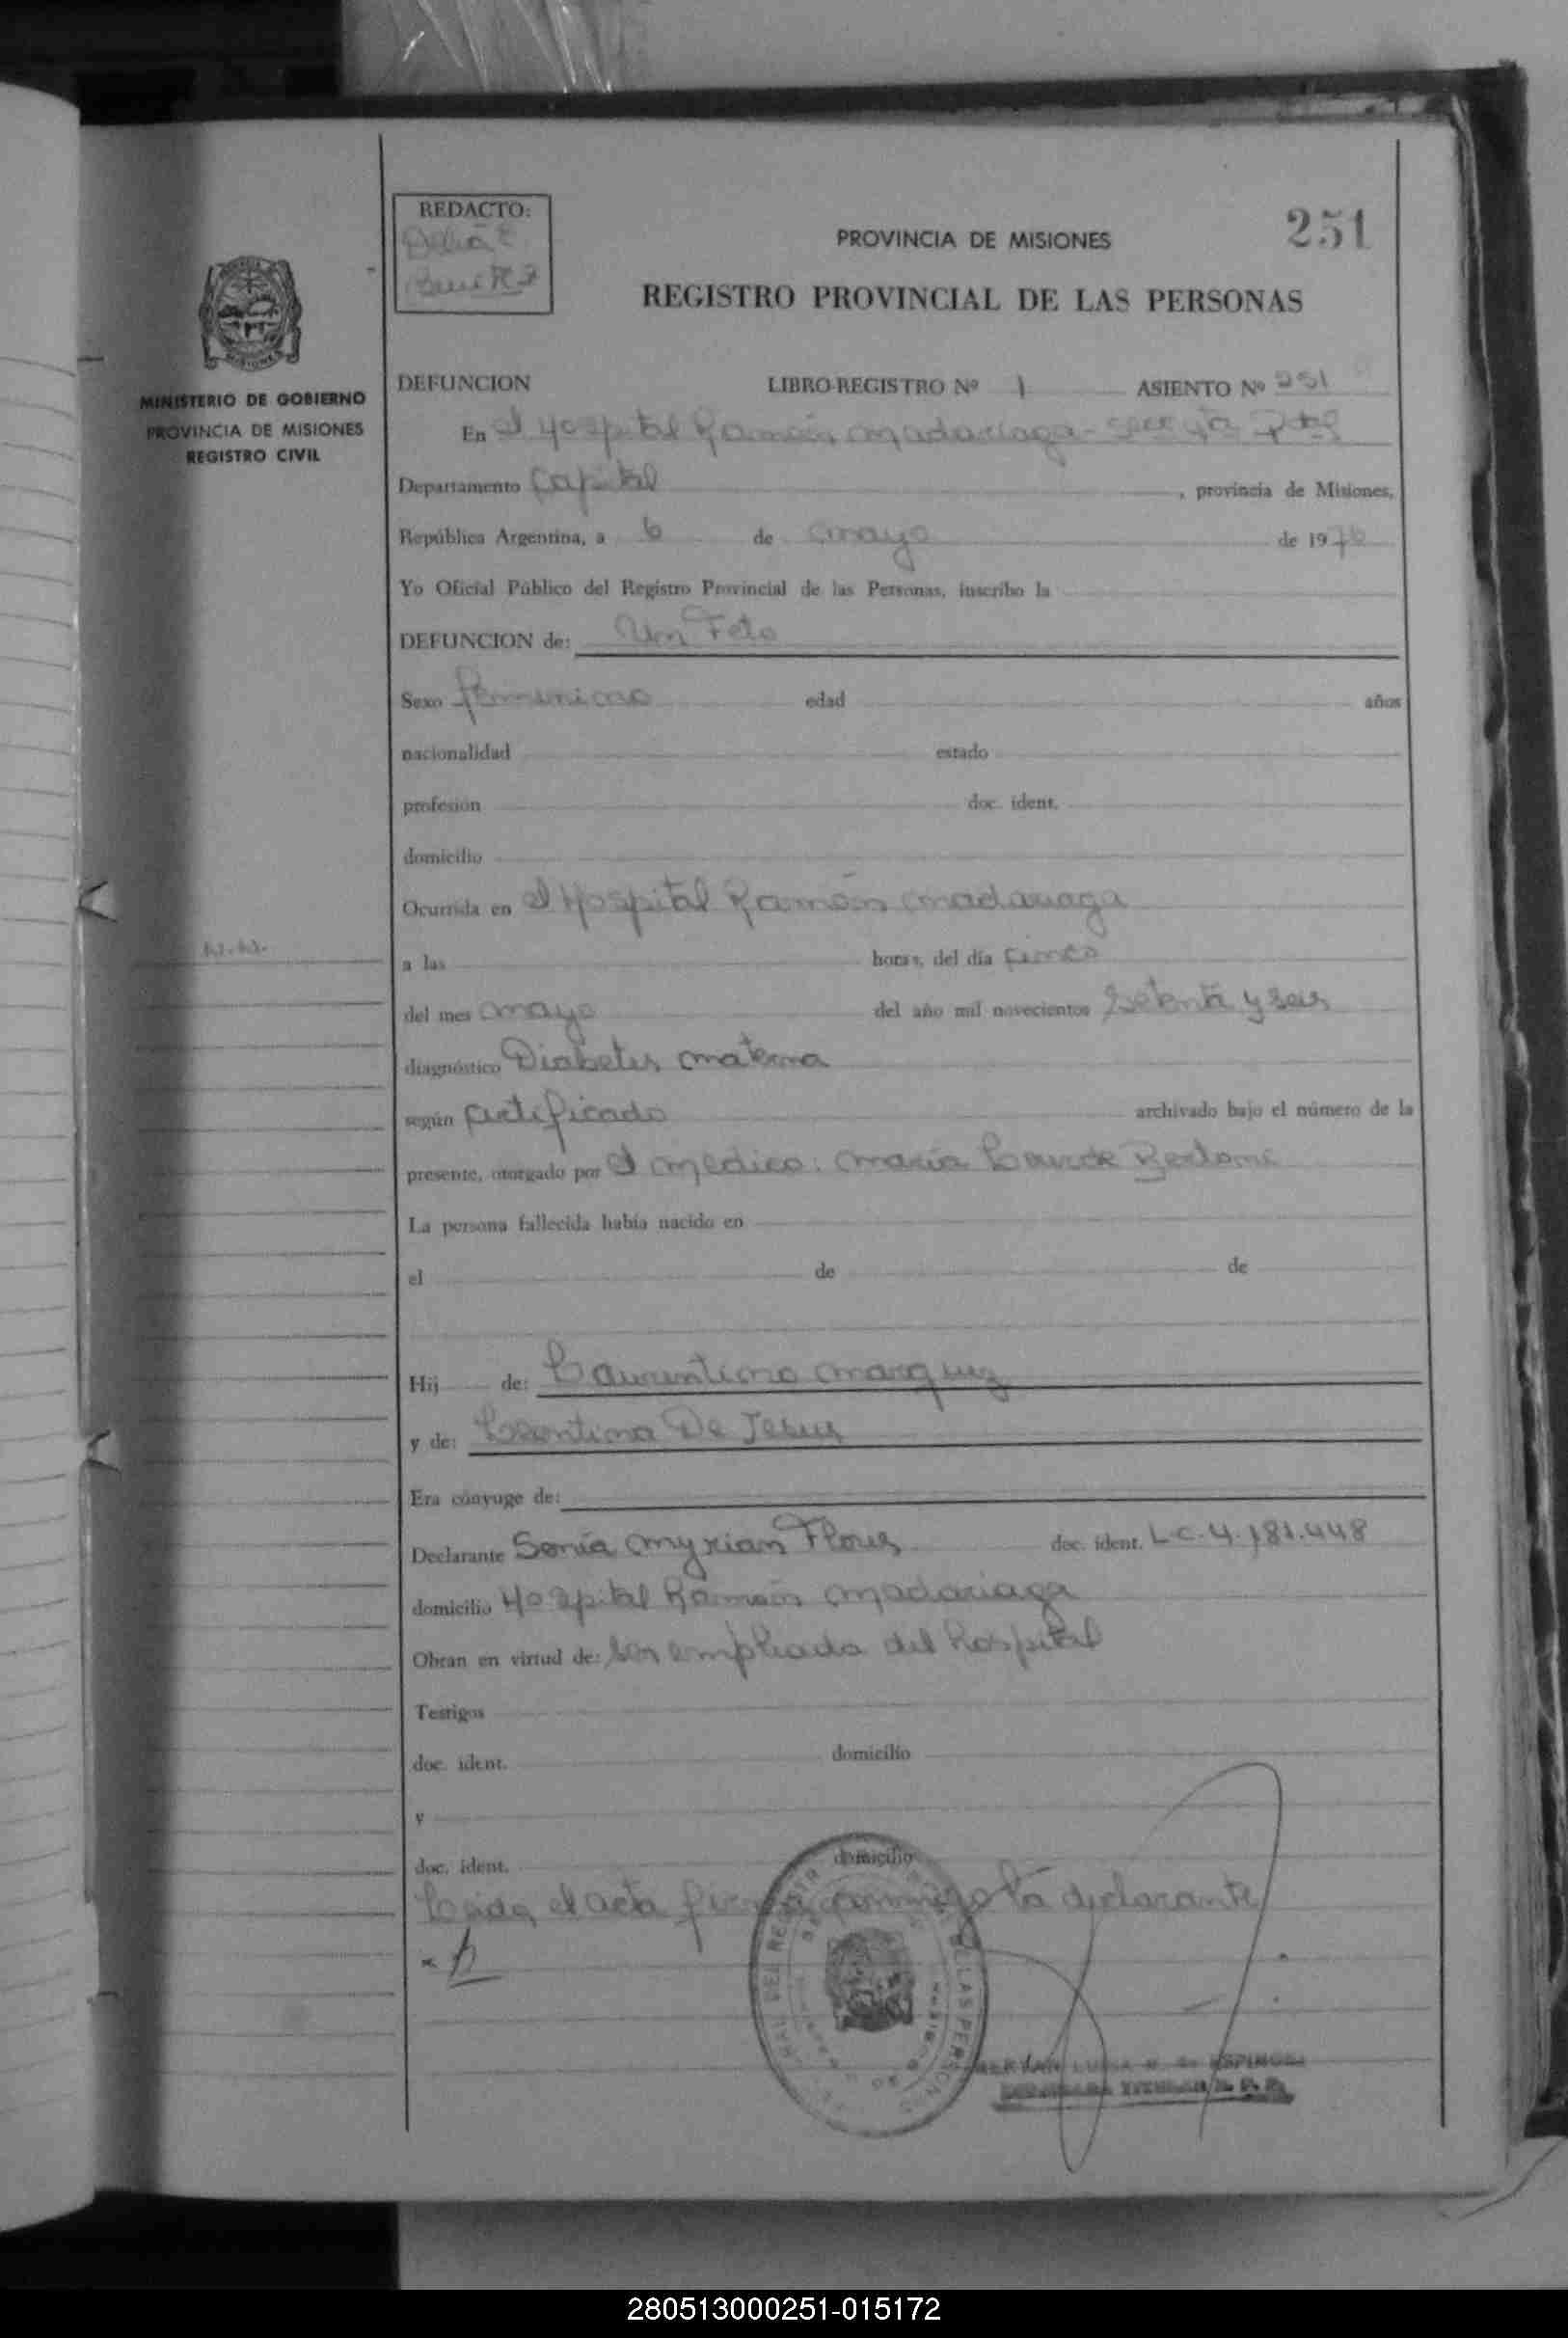 REDACTO:
Delia E
251
PROVINCIA DE MISIONES
REGISTRO PROVINCIAL DE LAS PERSONAS
MINISTERIO DE GOBIERNO
PROVINCIA DE MISIONES
REGISTRO CIVIL
DEFUNCION LIBRO-REGISTRO Nº 1 ASIENTO Nº 251
En el Hospital Ramón Madariaga -
Departamento Capital, provincia de Misiones,
República Argentina, a 6 de mayo de 1976
Yo Oficial Público del Registro Provincial de las Personas, inscribo la
DEFUNCION de: Un Feto
Sexo femenino edad años
nacionalidad estado
profesión doc. ident.
domicilio
Ocurrida en el Hospital Ramón Madariaga
a las horas, del día cinco
del mes mayo del año mil novecientos setenta y seis
diagnóstico Diabetes materna
según certificado archivado bajo el número de la
presente, otorgado por el medico: María
La persona fallecida había nacido en
el de de
Hij de: Laurentino Marquez
y de: Leontina De Jesus
Era cónyuge de:
Declarante Sonia Myrian Flores doc. ident. L-C-4.181.448
domicilio Hospital Ramón Madariaga
Obran en virtud de: ser empleada del hospital
Testigos
doc. ident. domicilio
y
doc. ident. domicilio
Leida el acta firma conmigo la declarante
ESPINOSA
TITULAR R. P. P.
280513000251-015172